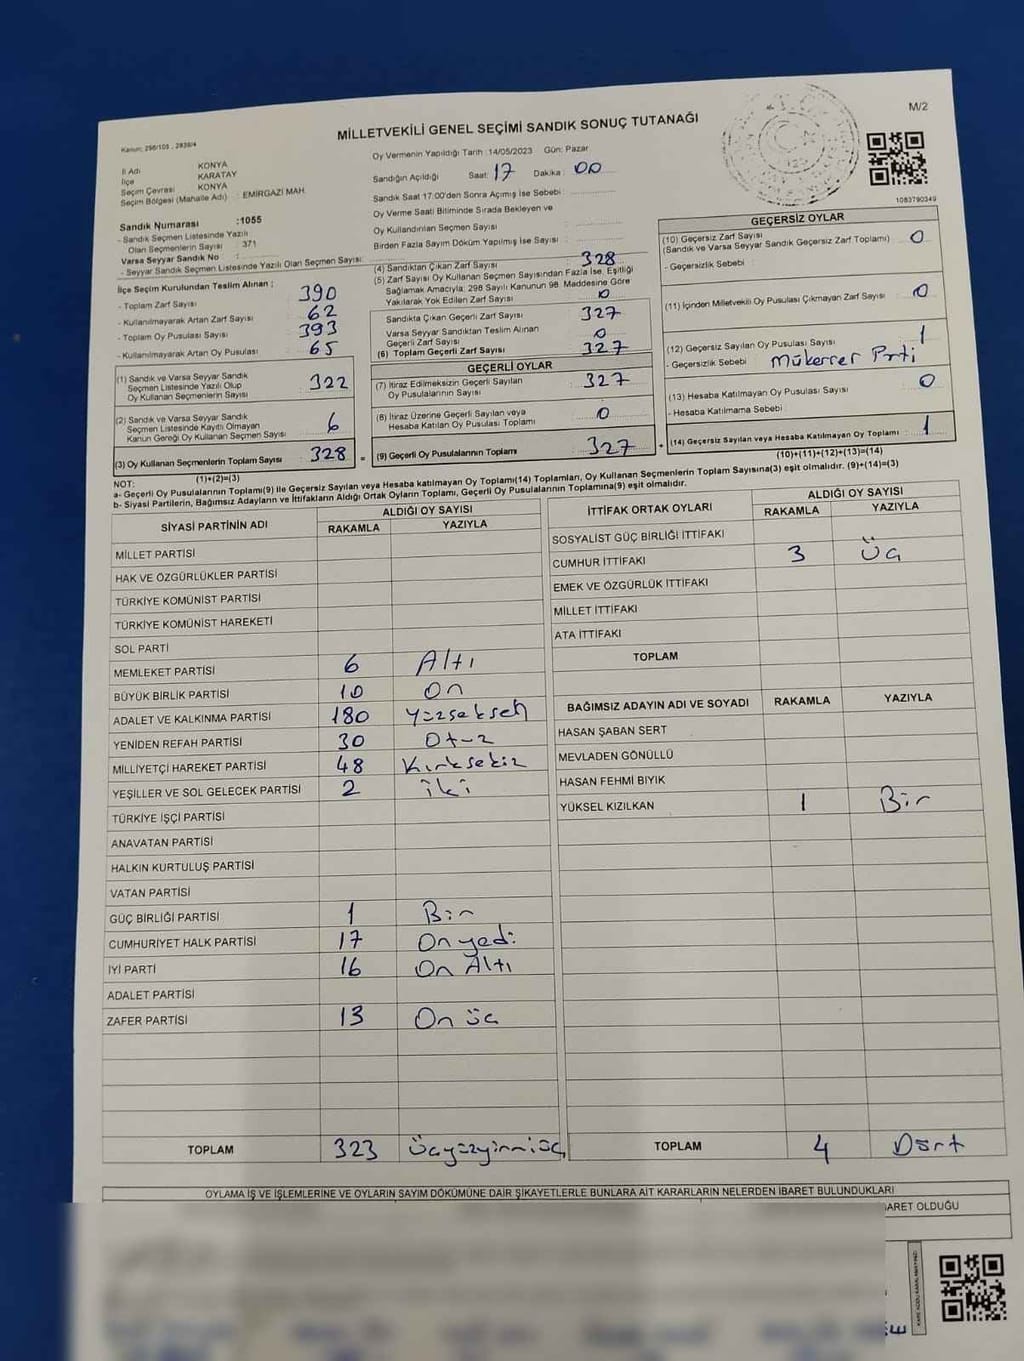 M/2
MİLLETVEKİLİ GENEL SEÇİMİ SANDIK SONUÇ TUTANAĞI
Kanun: 298/105 , 2839/4
İl Adı KONYA
İlçe KARATAY
Seçim Çevresi KONYA
Seçim Bölgesi (Mahalle Adı) : EMİRGAZİ MAH.
Oy Vermenin Yapıldığı Tarih :14/05/2023 Gün: Pazar
Sandığın Açıldığı Saat: 17 Dakika : 00
Sandık Saat 17.00'den Sonra Açımış İse Sebebi :
Oy Verme Saati Bitiminde Sırada Bekleyen ve
Oy Kullandırılan Seçmen Sayısı
Birden Fazla Sayım Döküm Yapılmış İse Sayısı :
1083790349
Sandık Numarası :1055
- Sandık Seçmen Listesinde Yazılı
Olan Seçmenlerin Sayısı : 371
Varsa Seyyar Sandık No :
- Seyyar Sandık Seçmen Listesinde Yazılı Olan Seçmen Sayısı:
İlçe Seçim Kurulundan Teslim Alınan :
- Toplam Zarf Sayısı : 390
- Kullanılmayarak Artan Zarf Sayısı : 62
- Toplam Oy Pusulası Sayısı : 393
- Kullanılmayarak Artan Oy Pusulası : 65
(1) Sandık ve Varsa Seyyar Sandık
Seçmen Listesinde Yazılı Olup
Oy Kullanan Seçmenlerin Sayısı : 322
(2) Sandık ve Varsa Seyyar Sandık
Seçmen Listesinde Kayıtlı Olmayan
Kanun Gereği Oy Kullanan Seçmen Sayısı : 6
(3) Oy Kullanan Seçmenlerin Toplam Sayısı : 328
(1)+(2)=(3)
(4) Sandıktan Çıkan Zarf Sayısı : 328
(5) Zarf Sayısı Oy Kullanan Seçmen Sayısından Fazla İse, Eşitliği
Sağlamak Amacıyla; 298 Sayılı Kanunun 98. Maddesine Göre
Yakılarak Yok Edilen Zarf Sayısı : 0
Sandıkta Çıkan Geçerli Zarf Sayısı : 327
Varsa Seyyar Sandıktan Teslim Alınan
Geçerli Zarf Sayısı : 0
(6) Toplam Geçerli Zarf Sayısı : 327
GEÇERLİ OYLAR
(7) İtiraz Edilmeksizin Geçerli Sayılan
Oy Pusulalarının Sayısı : 327
(8) İtiraz Üzerine Geçerli Sayılan veya
Hesaba Katılan Oy Pusulası Toplamı : 0
= (9) Geçerli Oy Pusulalarının Toplamı : 327
GEÇERSİZ OYLAR
(10) Geçersiz Zarf Sayısı
(Sandık ve Varsa Seyyar Sandık Geçersiz Zarf Toplamı) : 0
- Geçersizlik Sebebi :
(11) İçinden Milletvekili Oy Pusulası Çıkmayan Zarf Sayısı : 0
(12) Geçersiz Sayılan Oy Pusulası Sayısı : 1
- Geçersizlik Sebebi : Mükerrer Prti
(13) Hesaba Katılmayan Oy Pusulası Sayısı : 0
- Hesaba Katılmama Sebebi :
+ (14) Geçersiz Sayılan veya Hesaba Katılmayan Oy Toplamı : 1
(10)+(11)+(12)+(13)=(14)
NOT:
a- Geçerli Oy Pusulalarının Toplamı(9) ile Geçersiz Sayılan veya Hesaba katılmayan Oy Toplamı(14) Toplamları, Oy Kullanan Seçmenlerin Toplam Sayısına(3) eşit olmalıdır. (9)+(14)=(3)
b- Siyasi Partilerin, Bağımsız Adayların ve İttifakların Aldığı Ortak Oyların Toplamı, Geçerli Oy Pusulalarının Toplamına(9) eşit olmalıdır.
SİYASİ PARTİNİN ADI ALDIĞI OY SAYISI
RAKAMLA YAZIYLA
MİLLET PARTİSİ
HAK VE ÖZGÜRLÜKLER PARTİSİ
TÜRKİYE KOMÜNİST PARTİSİ
TÜRKİYE KOMÜNİST HAREKETİ
SOL PARTİ
MEMLEKET PARTİSİ 6 Altı
BÜYÜK BİRLİK PARTİSİ 10 On
ADALET VE KALKINMA PARTİSİ 180 Yüzseksen
YENİDEN REFAH PARTİSİ 30 Otuz
MİLLİYETÇİ HAREKET PARTİSİ 48 Kırksekiz
YEŞİLLER VE SOL GELECEK PARTİSİ 2 İki
TÜRKİYE İŞÇİ PARTİSİ
ANAVATAN PARTİSİ
HALKIN KURTULUŞ PARTİSİ
VATAN PARTİSİ
GÜÇ BİRLİĞİ PARTİSİ 1 Bir
CUMHURİYET HALK PARTİSİ 17 On yedi
İYİ PARTİ 16 On Altı
ADALET PARTİSİ
ZAFER PARTİSİ 13 On üç
TOPLAM 323 Üçyüzyirmiüç
İTTİFAK ORTAK OYLARI ALDIĞI OY SAYISI
RAKAMLA YAZIYLA
SOSYALİST GÜÇ BİRLİĞİ İTTİFAKI
CUMHUR İTTİFAKI 3 Üç
EMEK VE ÖZGÜRLÜK İTTİFAKI
MİLLET İTTİFAKI
ATA İTTİFAKI
TOPLAM
BAĞIMSIZ ADAYIN ADI VE SOYADI RAKAMLA YAZIYLA
HASAN ŞABAN SERT
MEVLADEN GÖNÜLLÜ
HASAN FEHMİ BIYIK
YÜKSEL KIZILKAN 1 Bir
TOPLAM 4 Dört
OYLAMA İŞ VE İŞLEMLERİNE VE OYLARIN SAYIM DÖKÜMÜNE DAİR ŞİKAYETLERLE BUNLARA AİT KARARLARIN NELERDEN İBARET BULUNDUKLARI
ARET OLDUĞU